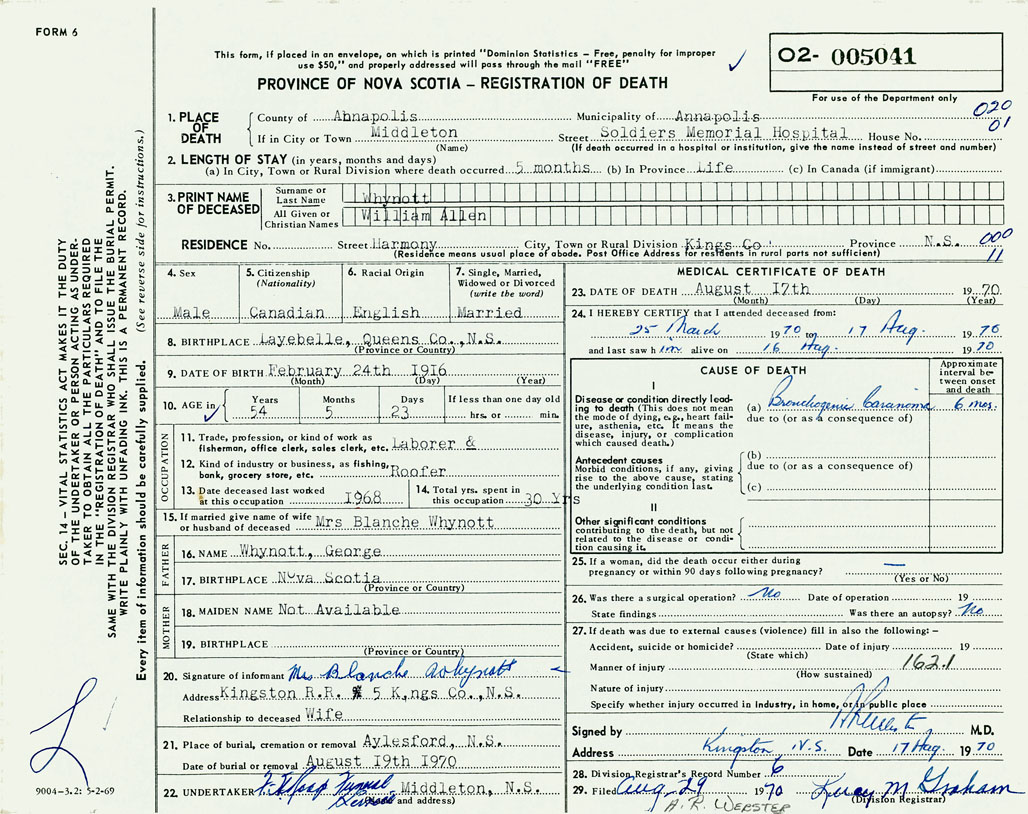 FORM 6
This form, if placed in an envelope, on which is printed "Dominion Statistics – Free, penalty for improper
use $50," and properly addressed will pass through the mail "FREE"
PROVINCE OF NOVA SCOTIA – REGISTRATION OF DEATH
02- 005041
For use of the Department only
020
01
1. PLACE OF DEATH
County of Annapolis Municipality of Annapolis
If in City or Town Middleton Street Soldiers Memorial Hospital House No.
(Name) (If death occurred in a hospital or institution, give the name instead of street and number)
2. LENGTH OF STAY (in years, months and days)
(a) In City, Town or Rural Division where death occurred 5 months (b) In Province Life (c) In Canada (if immigrant)
3. PRINT NAME OF DECEASED
Surname or Last Name Whynott
All Given or Christian Names William Allen
RESIDENCE No. Street Harmony City, Town or Rural Division Kings Co Province N.S. 000
(Residence means usual place of abode. Post Office Address for residents in rural parts not sufficient) 11
4. Sex
Male
5. Citizenship
(Nationality)
Canadian
6. Racial Origin
English
7. Single, Married,
Widowed or Divorced
(write the word)
Married
8. BIRTHPLACE Layebelle, Queens Co., N.S.
(Province or Country)
9. DATE OF BIRTH February 24th 1916
(Month) (Day) (Year)
10. AGE in
Years 54
Months 5
Days 23
If less than one day old
hrs. or min.
OCCUPATION
11. Trade, profession, or kind of work as
fisherman, office clerk, sales clerk, etc. Laborer &
12. Kind of industry or business, as fishing,
bank, grocery store, etc. Roofer
13. Date deceased last worked
at this occupation 1968
14. Total yrs. spent in
this occupation 30 Yrs
15. If married give name of wife
or husband of deceased Mrs Blanche Whynott
FATHER
16. NAME Whynott, George
17. BIRTHPLACE Nova Scotia
(Province or Country)
MOTHER
18. MAIDEN NAME Not Available
19. BIRTHPLACE
(Province or Country)
20. Signature of informant Mrs Blanche Whynott
Address Kingston R.R. # 5 K,ngs Co., N.S.
Relationship to deceased Wife
21. Place of burial, cremation or removal Aylesford, N.S.
Date of burial or removal August 19th 1970
22. UNDERTAKER Funeral Middleton, N.S.
(Name and address)
MEDICAL CERTIFICATE OF DEATH
23. DATE OF DEATH August 17th 1970
(Month) (Day) (Year)
24. I HEREBY CERTIFY that I attended deceased from:
25 March 1970 to 17 Aug. 1970
and last saw him alive on 16 Aug. 1970
CAUSE OF DEATH
Approximate
interval be-
tween onset
and death
I
Disease or condition directly lead-
ing to death (This does not mean
the mode of dying, e.g., heart fail-
ure, asthenia, etc. It means the
disease, injury, or complication
which caused death.)
(a) Bronchogenic Carcinoma 6 mos.
due to (or as a consequence of)
Antecedent causes
Morbid conditions, if any, giving
rise to the above cause, stating
the underlying condition last.
(b)
due to (or as a consequence of)
(c)
II
Other significant conditions
contributing to the death, but not
related to the disease or condi-
tion causing it.
25. If a woman, did the death occur either during
pregnancy or within 90 days following pregnancy? —
(Yes or No)
26. Was there a surgical operation? No Date of operation 19
State findings Was there an autopsy? No
27. If death was due to external causes (violence) fill in also the following: –
Accident, suicide or homicide? Date of injury 19
(State which)
Manner of injury 162.1
(How sustained)
Nature of injury
Specify whether injury occurred in Industry, in home, or in public place
Signed by M.D.
Address Kingston, N.S. Date 17 Aug. 1970
28. Division Registrar's Record Number 6
29. Filed Aug. 29 1970 Lucy M Graham
A. R. WEBSTER (Division Registrar)
SEC. 14 – VITAL STATISTICS ACT MAKES IT THE DUTY
OF THE UNDERTAKER OR PERSON ACTING AS UNDER-
TAKER TO OBTAIN ALL THE PARTICULARS REQUIRED
IN THE "REGISTRATION OF DEATH" AND TO FILE THE
SAME WITH THE DIVISION REGISTRAR WHO SHALL ISSUE THE BURIAL PERMIT.
WRITE PLAINLY WITH UNFADING INK. THIS IS A PERMANENT RECORD.
Every item of information should be carefully supplied. (See reverse side for instructions.)
9004–3.2: 5-2-69